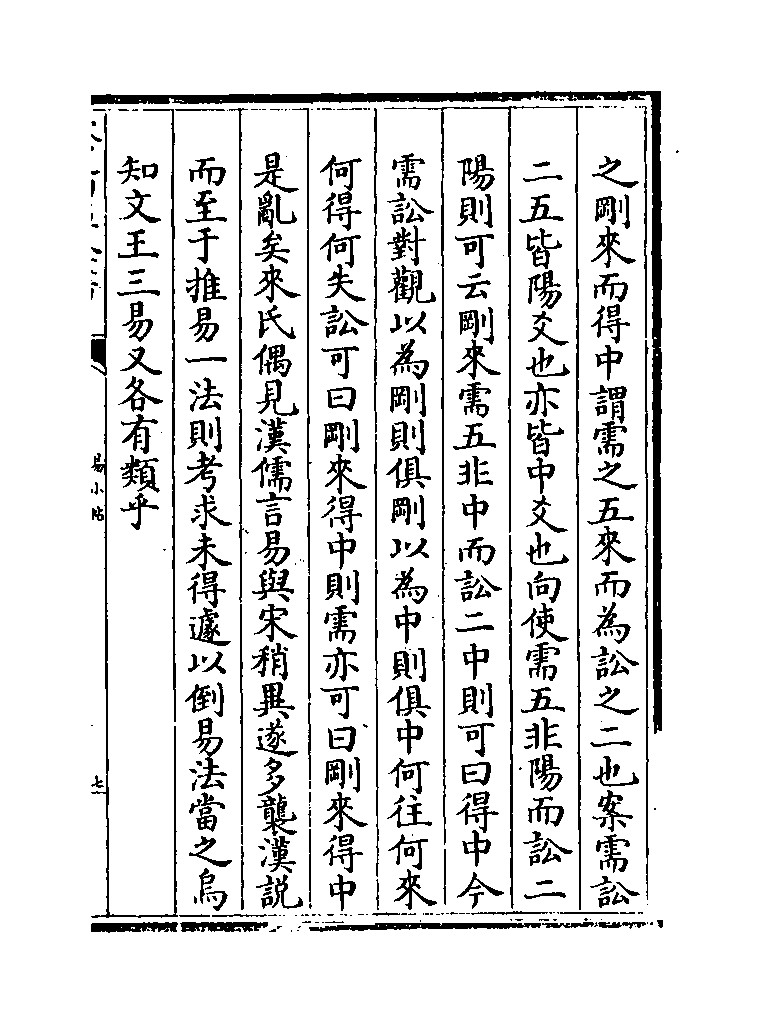 之剛來而得中謂需之五來而為訟之二也案需訟
二五皆陽爻也亦皆中爻也向使需五非陽而訟二
陽則可云剛來需五非中而訟二中則可曰得中今
需訟對觀以為剛則俱剛以為中則俱中何往何來
何得何失訟可曰剛來得中則需亦可曰剛來得中
是亂矣來氏偶見漢儒言易與宋稍異遂多襲漢説
而至于推易一法則考求未得遽以倒易法當之烏
知文王三易又各有類乎
易小帖
七